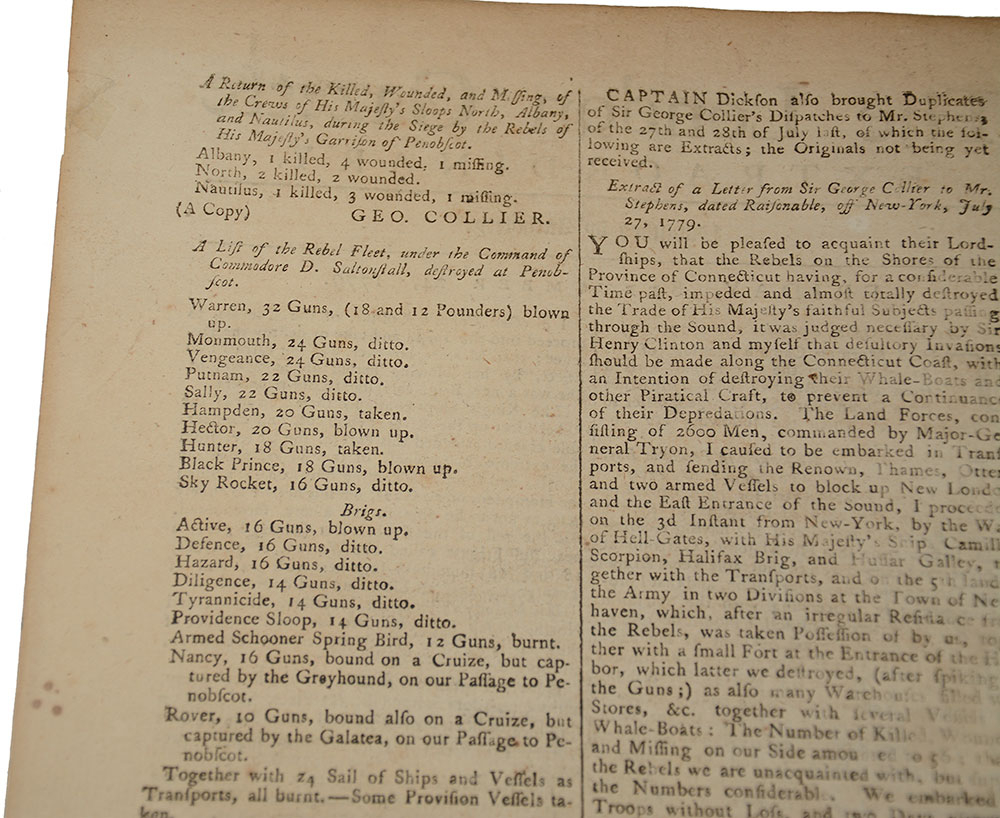 A Return of the Killed, Wounded, and Miſſing, of
the Crews of His Majeſty's Sloops North, Albany,
and Nautilus, during the Siege by the Rebels of
His Majeſty's Garriſon of Penobſcot.
Albany, 1 killed, 4 wounded, 1 miſſing.
North, 2 killed, 2 wounded.
Nautilus, 1 killed, 3 wounded, 1 miſſing.
(A Copy) GEO. COLLIER.
A Liſt of the Rebel Fleet, under the Command of
Commodore D. Saltonſtall, deſtroyed at Penob-
ſcot.
Warren, 32 Guns, (18 and 12 Pounders) blown
up.
Monmouth, 24 Guns, ditto.
Vengeance, 24 Guns, ditto.
Putnam, 22 Guns, ditto.
Sally, 22 Guns, ditto.
Hampden, 20 Guns, taken.
Hector, 20 Guns, blown up.
Hunter, 18 Guns, taken.
Black Prince, 18 Guns, blown up.
Sky Rocket, 16 Guns, ditto.
Brigs.
Active, 16 Guns, blown up.
Defence, 16 Guns, ditto.
Hazard, 16 Guns, ditto.
Diligence, 14 Guns, ditto.
Tyrannicide, 14 Guns, ditto.
Providence Sloop, 14 Guns, ditto.
Armed Schooner Spring Bird, 12 Guns, burnt.
Nancy, 16 Guns, bound on a Cruize, but cap-
tured by the Greyhound, on our Paſſage to Pe-
nobſcot.
Rover, 10 Guns, bound alſo on a Cruize, but
captured by the Galatea, on our Paſſage to Pe-
nobſcot.
Together with 24 Sail of Ships and Veſſels as
Tranſports, all burnt.—Some Proviſion Veſſels ta-
ken.
CAPTAIN Dickſon alſo brought Duplicates
of Sir George Collier's Diſpatches to Mr. Stephens,
of the 27th and 28th of July laſt, of which the fol-
lowing are Extracts; the Originals not being yet
received.
Extract of a Letter from Sir George Collier to Mr.
Stephens, dated Raiſonable, off New-York, July
27, 1779.
YOU will be pleaſed to acquaint their Lord-
ſhips, that the Rebels on the Shores of the
Province of Connecticut having, for a conſiderable
Time paſt, impeded and almoſt totally deſtroyed
the Trade of His Majeſty's faithful Subjects paſſing
through the Sound, it was judged neceſſary by Sir
Henry Clinton and myſelf that deſultory Invaſions
ſhould be made along the Connecticut Coaſt, with
an Intention of deſtroying their Whale-Boats and
other Piratical Craft, to prevent a Continuance
of their Depredations. The Land Forces, con
ſiſting of 2600 Men, commanded by Major-Ge
neral Tryon, I cauſed to be embarked in Tranſ
ports, and ſending the Renown, Thames, Otter
and two armed Veſſels to block up New Lond
and the Eaſt Entrance of the Sound, I proceed
on the 3d Inſtant from New-York, by the W
of Hell-Gates, with His Majeſty's Ship Camill
Scorpion, Halifax Brig, and Huſſar Galley, t
gether with the Tranſports, and on the 5th land
the Army in two Diviſions at the Town of Ne
haven, which, after an irregular
the Rebels, was taken Poſſeſſion of by us, to
ther with a ſmall Fort at the Entrance of the H
bor, which latter we deſtroyed, (after ſpiking
the Guns;) as alſo many Warehouſes filled
Stores, &c. together with ſeveral Veſſels
Whale-Boats: The Number of Killed,
and Miſſing on our Side
the Rebels we are unacquainted with, but
the Numbers conſiderable. We embarked
Troops without Loſs, and two Days